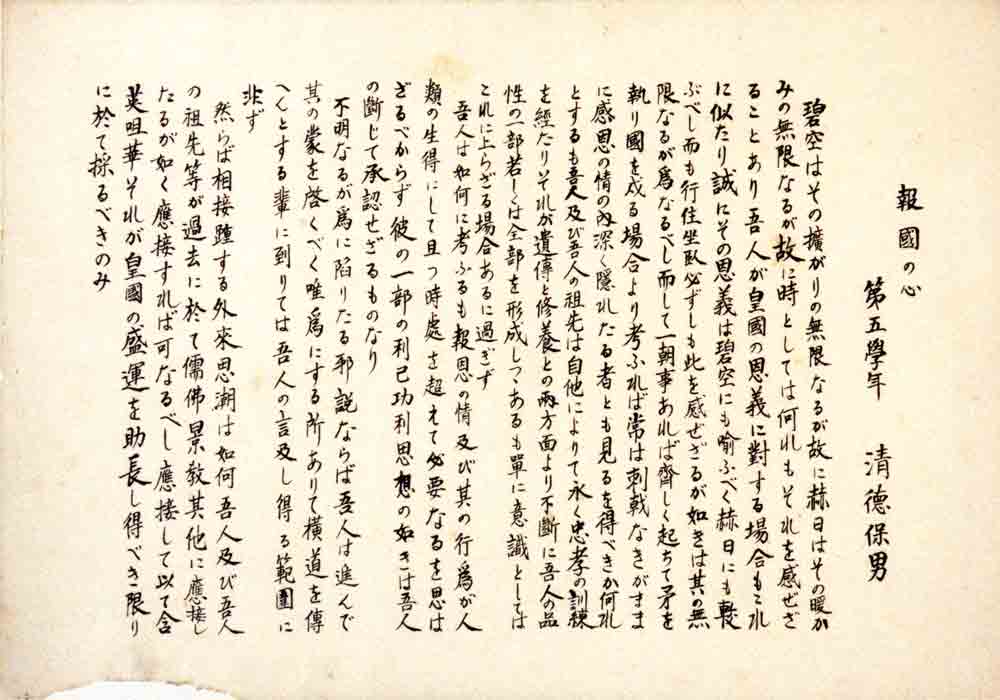 報國の心
第五學年　清德保男
碧空はその擴がりの無限なるが故に赫日はその暖か
みの無限なるが故に時としては何れもそれを感ぜざ
ることあり吾人が皇國の恩義に對する場合もこれ
に似たり誠にその恩義は碧空にも喩ふべく赫日にも較
ぶべし而も行住坐臥必ずしも此を感ぜざるが如きは其の無
限なるが爲なるべし而して一朝事あれば齊しく起ちて矛を
執り國を戍る場合より考ふれば常は刺戟なきがまま
に感恩の情の內深く隱れたる者とも見るを得べきか何れ
とするも吾人及び吾人の祖先は自他によりて永く忠孝の訓練
を經たりそれが遺傳と修養との兩方面より不斷に吾人の品
性の一部若しくは全部を形成しつゝあるも單に意識としては
これに上らざる場合あるに過ぎず
吾人は如何に考ふるも報恩の情及び其の行爲が人
類の生得にして且つ時處を超えて必要なるを思は
ざるべからず彼の一部の利己功利思想の如きは吾人
の斷じて承認せざるものなり
不明なるが爲に陷りたる邪說ならば吾人は進んで
其の蒙を啓くべく唯爲にする所ありて橫道を傳
へんとする輩に到りては吾人の言及し得る範圍に
非ず
然らば相接踵する外來思潮は如何吾人及び吾人
の祖先等が過去に於て儒佛景敎其他に應接し
たるが如く應接すれば可なるべし應接して以て含
英咀華それが皇國の盛運を助長し得べき限り
に於て採るべきのみ